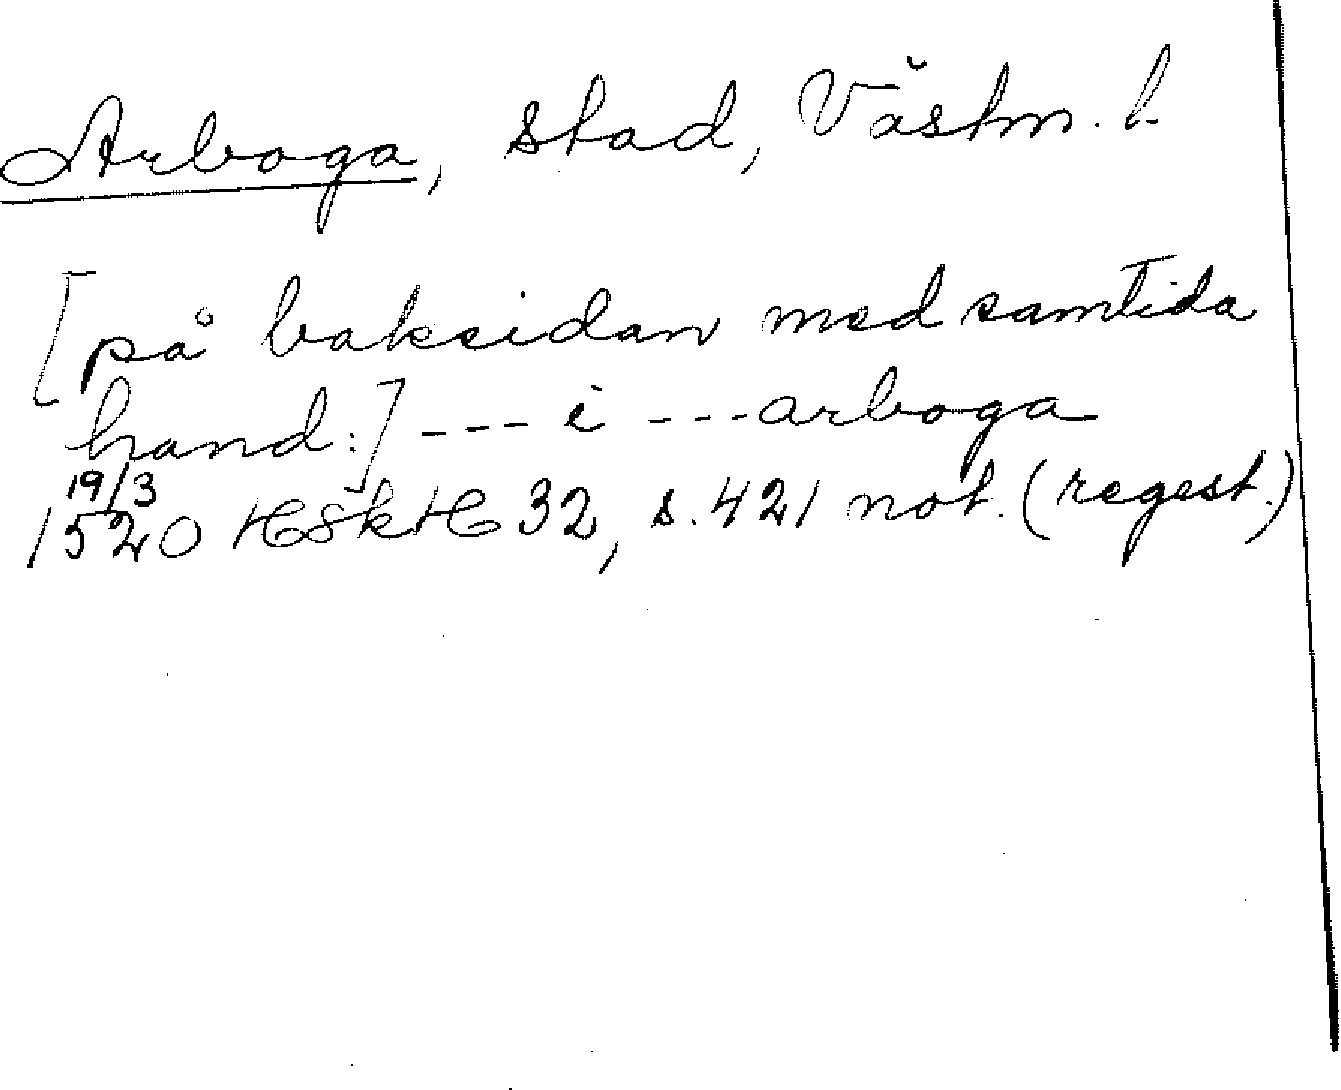 Arboga, stad, Västm. l.
[på baksidan med samtida
hand:] --- i --- arboga
19/3
1520 HSkH 32, s. 421 not. (regest.)